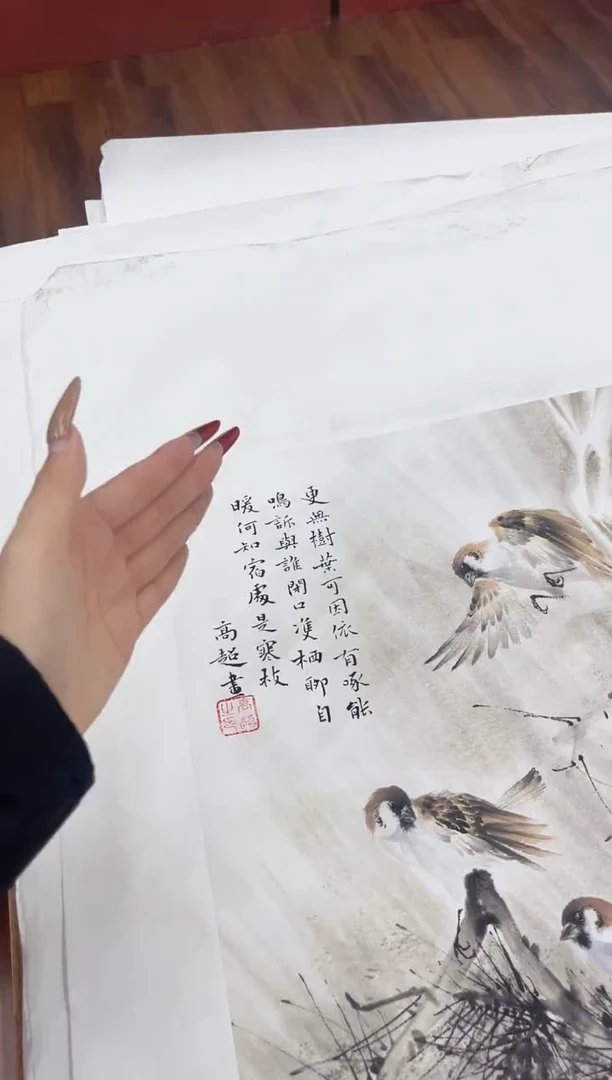 更無樹葉可因依有啄能
鳴訴與誰閉口栖聊自
暖何知宿處是寒枝
高超畫
高超之印